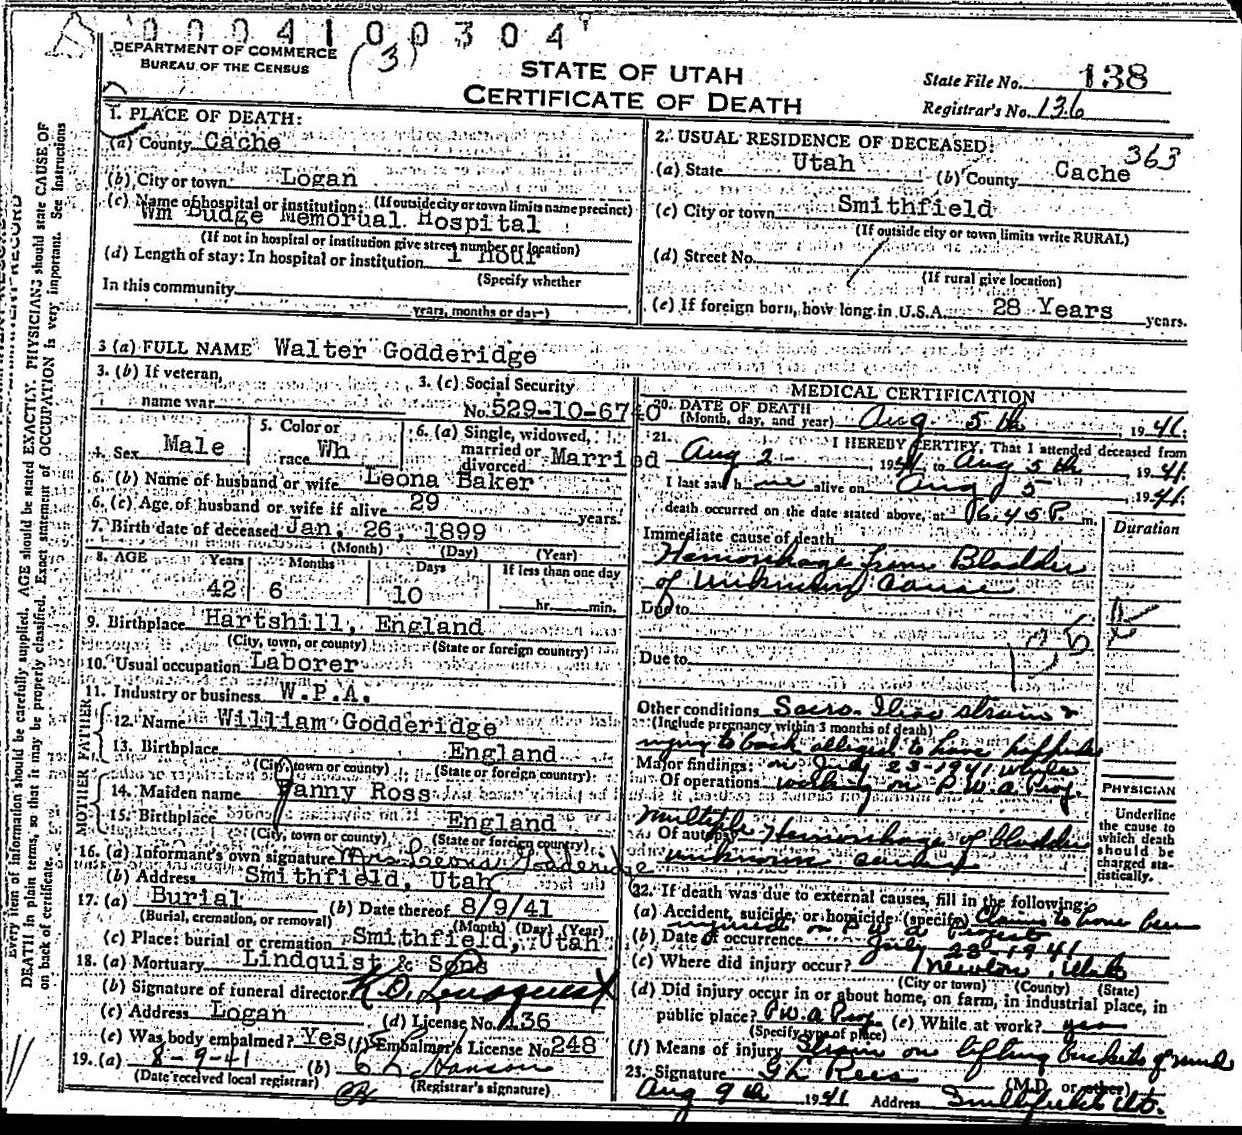 0004100304
DEPARTMENT OF COMMERCE
BUREAU OF THE CENSUS
(3)
STATE OF UTAH
CERTIFICATE OF DEATH
State File No. 138
Registrar's No. 136
1. PLACE OF DEATH:
(a) County Cache
(b) City or town Logan
(If outside city or town limits name precinct)
(c) Name of hospital or institution:
Wm Budge Memorual Hospital
(If not in hospital or institution give street number or location)
(d) Length of stay: In hospital or institution 1 Hour
(Specify whether
In this community
years, months or day)
2. USUAL RESIDENCE OF DECEASED:
363
(a) State Utah (b) County Cache
(c) City or town Smithfield
(If outside city or town limits write RURAL)
(d) Street No.
(If rural give location)
(e) If foreign born, how long in U.S.A. 28 Years years.
3 (a) FULL NAME Walter Godderidge
3. (b) If veteran,
name war
3. (c) Social Security
No. 529-10-6740
4. Sex Male
5. Color or
race Wh
6. (a) Single, widowed,
married or
divorced Married
6. (b) Name of husband or wife Leona Baker
6. (c) Age of husband or wife if alive 29 years.
7. Birth date of deceased Jan. 26, 1899
(Month) (Day) (Year)
8. AGE Years Months Days If less than one day
42 6 10 hr. min.
9. Birthplace Hartshill, England
(City, town, or county) (State or foreign country)
10. Usual occupation Laborer
11. Industry or business W.P.A.
FATHER
12. Name William Godderidge
13. Birthplace England
(City, town or county) (State or foreign country)
MOTHER
14. Maiden name Fanny Ross
15. Birthplace England
(City, town or county) (State or foreign country)
16. (a) Informant's own signature Mrs Leona Godderidge
(b) Address Smithfield, Utah
17. (a) Burial (b) Date thereof 8/9/41
(Burial, cremation, or removal) (Month) (Day) (Year)
(c) Place: burial or cremation Smithfield, Utah
18. (a) Mortuary Lindquist & Sons
(b) Signature of funeral director
(c) Address Logan (d) License No. 136
(e) Was body embalmed? Yes (f) Embalmer's License No. 248
19. (a) 8-9-41 (b)
(Date received local registrar) (Registrar's signature)
MEDICAL CERTIFICATION
20. DATE OF DEATH
(Month, day, and year) Aug. 5th 1941.
21. I HEREBY CERTIFY, That I attended deceased from
Aug 2 1941 to Aug 5th 1941.
I last saw h im alive on Aug 5 1941.
death occurred on the date stated above, at 6:45 P. m.
Duration
Immediate cause of death
Hemorrhage from Bladder
of unknown cause
Due to
Due to
Other conditions Sacro Iliac strain &
(Include pregnancy within 3 months of death)
injury to back alleged to have happened
Major findings: on July 23-1941 while
Of operations working on P.W.A Proj.
PHYSICIAN
Underline
the cause to
which death
should be
charged sta-
tistically.
Multiple Hemorrhage of bladder
Of autopsy
unknown cause
22. If death was due to external causes, fill in the following:
(a) Accident, suicide, or homicide (specify) Claims to have been
injured on P W A Project
(b) Date of occurrence July 23-1941
(c) Where did injury occur? Newton, Utah
(City or town) (County) (State)
(d) Did injury occur in or about home, on farm, in industrial place, in
public place? P.W.A Proj. (e) While at work? yes
(Specify type of place)
(f) Means of injury Strain on lifting buckets of mud
23. Signature G L Rees (M.D. or other)
Aug 9th 1941 Address Smithfield Ut.
Every item of information should be carefully supplied. AGE should be stated EXACTLY. PHYSICIANS should state CAUSE OF
DEATH in plain terms, so that it may be properly classified. Exact statement of OCCUPATION is very important. See Instructions
on back of certificate.